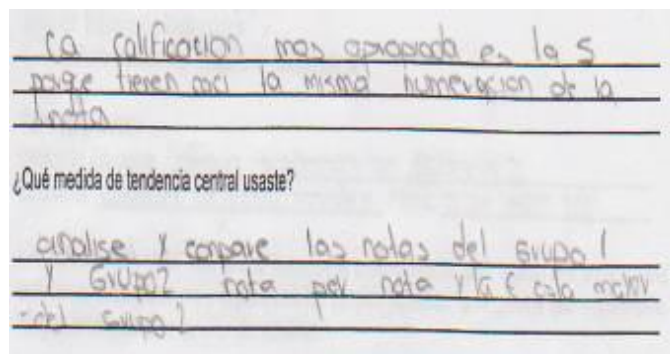 La calificacion mas apropiada es la 5
porqe tienen caci la misma numeracion de la
nota
¿Qué medida de tendencia central usaste?
analise y conpare las notas del Grupo 1
y Grupo2 nota por nota y la
del Grupo 2